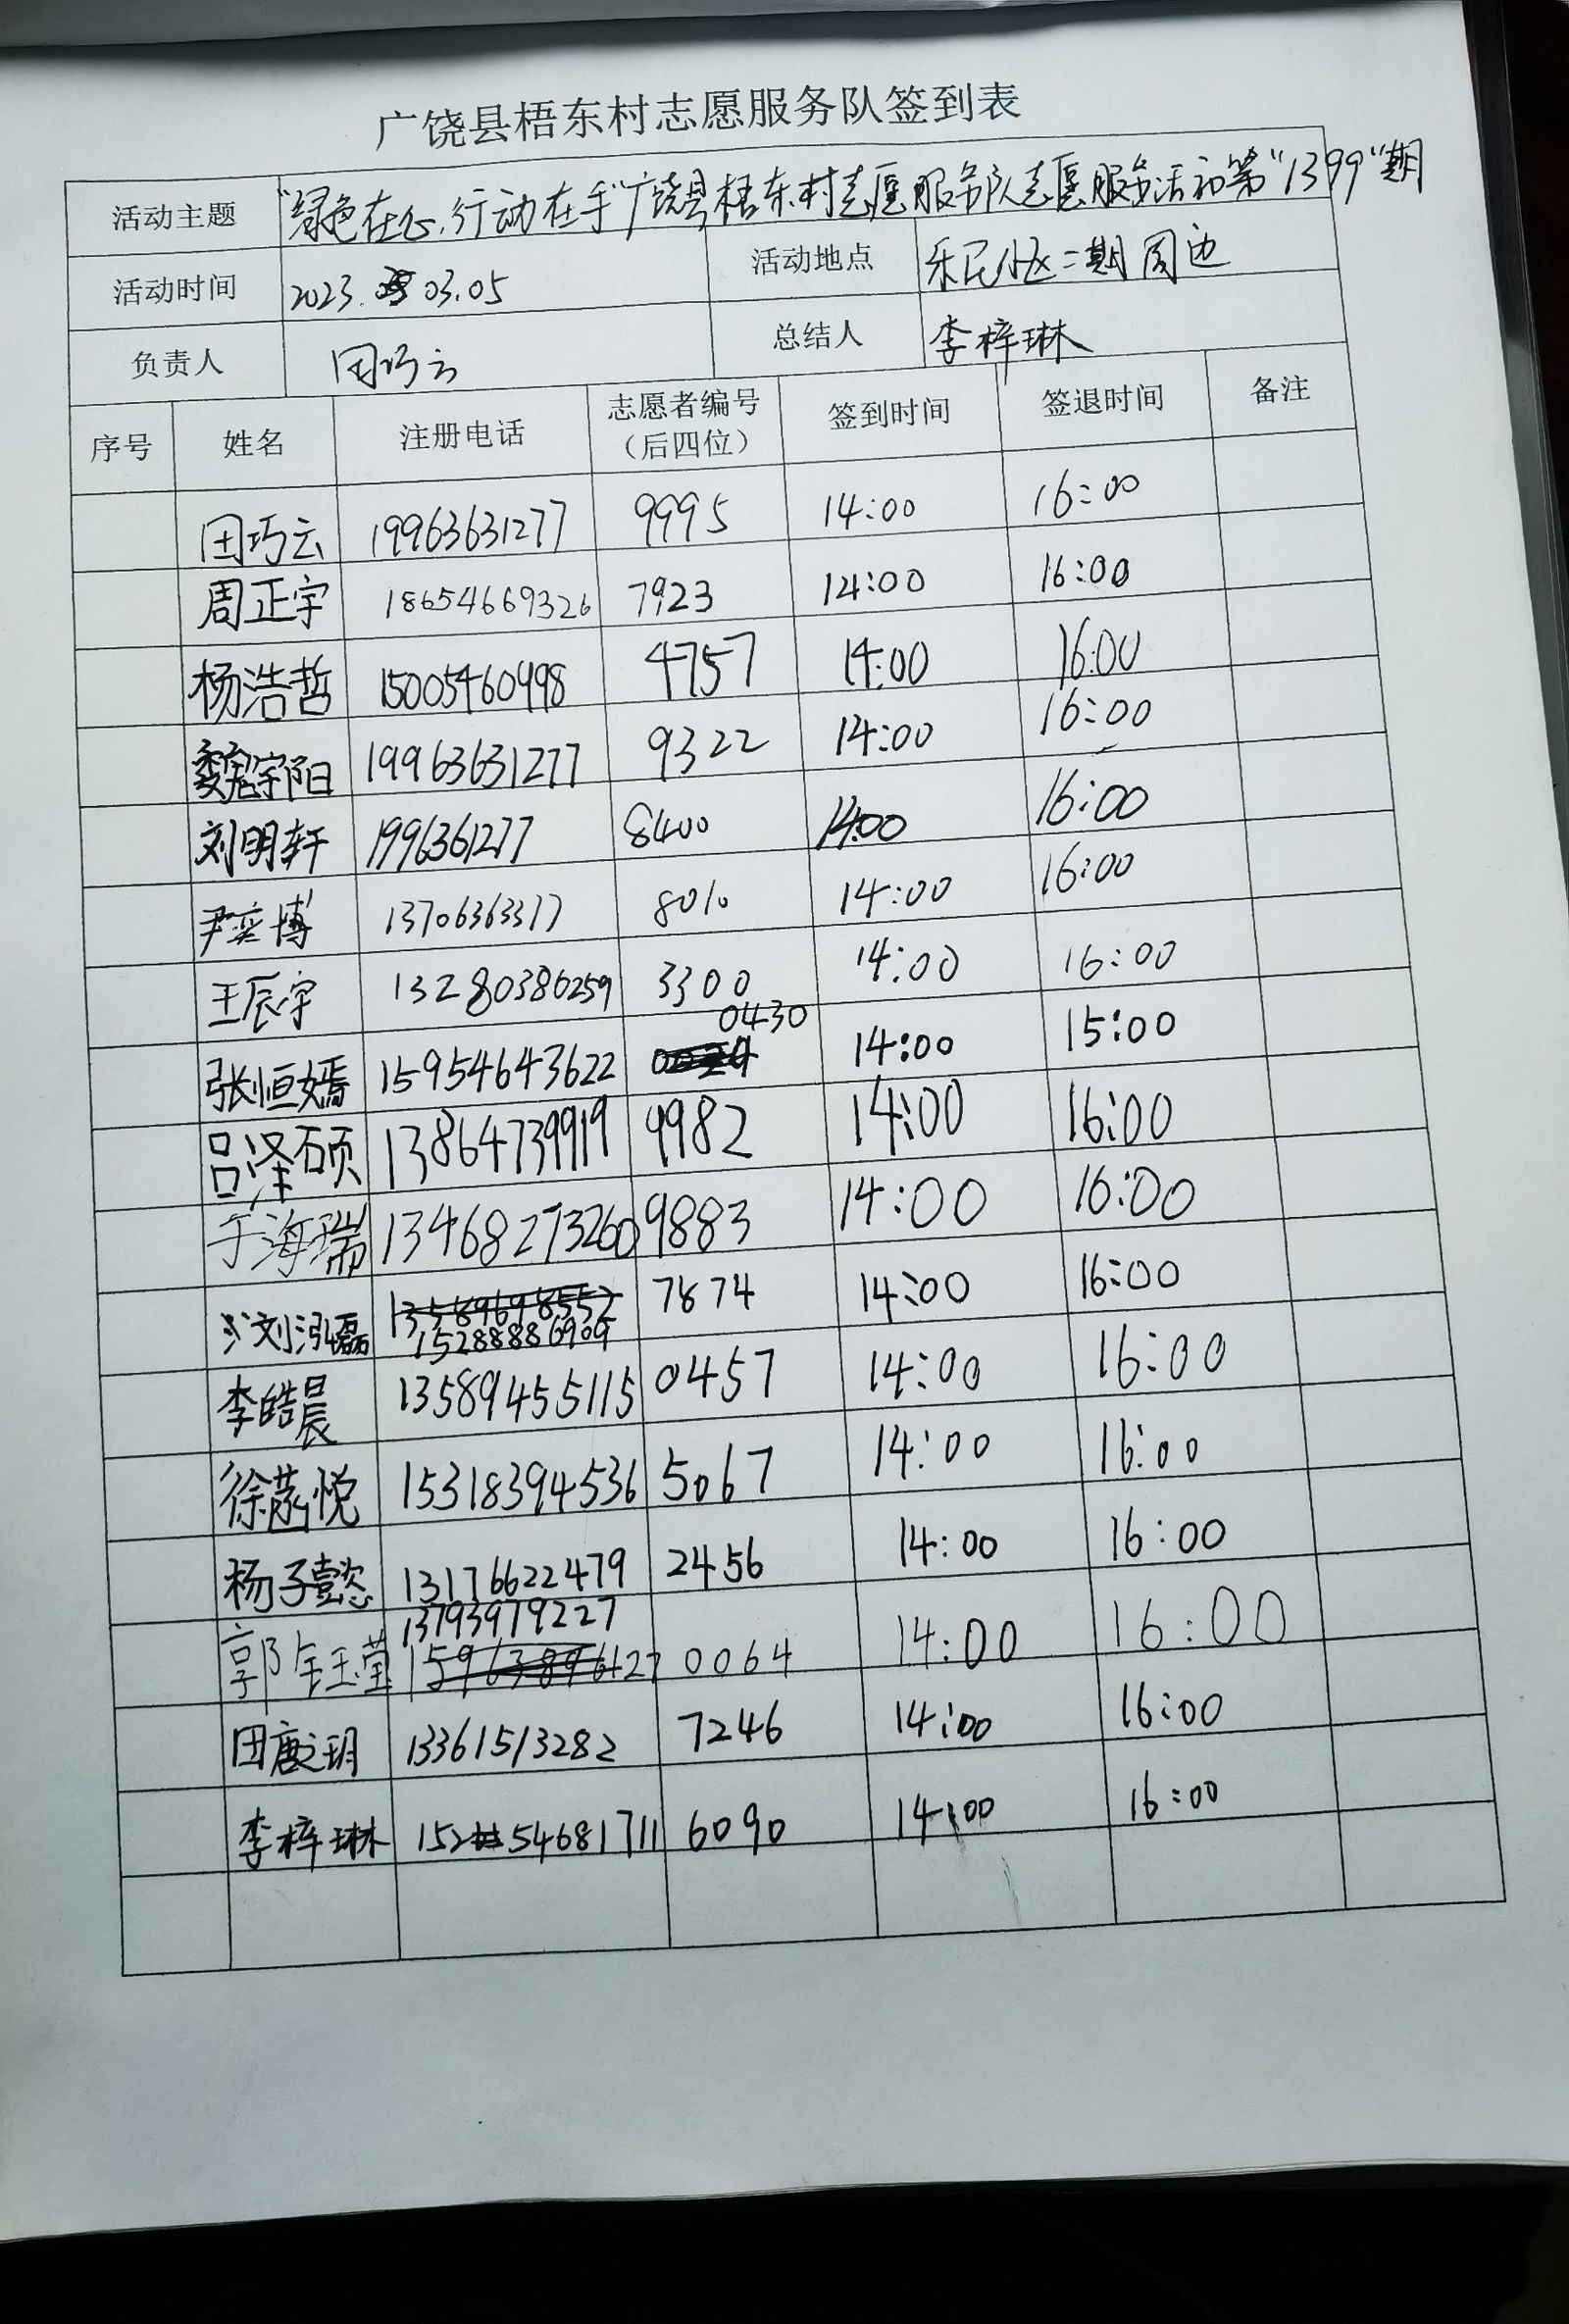 广饶县梧东村志愿服务队签到表
活动主题 "绿色在心,行动在手"广饶县梧东村志愿服务队志愿服务活动第"1399"期
活动时间 2023. 03.05 活动地点 乐民小区二期周边
负责人 田巧云 总结人 李梓琳
序号 姓名 注册电话 志愿者编号（后四位） 签到时间 签退时间 备注
田巧云 19963631277 9995 14:00 16:00
周正宇 18654669326 7923 14:00 16:00
杨浩哲 15005460498 4757 14:00 16:00
魏宇阳 19963631277 9322 14:00 16:00
刘明轩 1996361277 8400 14:00 16:00
尹奕博 13706363317 8010 14:00 16:00
王辰宇 13280386259 3300 14:00 16:00
张恒嫣 15954643622 0430 14:00 15:00
吕泽硕 13864739919 9982 14:00 16:00
于海瑞 13468273260 9883 14:00 16:00
刘泓磊 13589698552 15288886909 7874 14:00 16:00
李皓晨 13589455115 0457 14:00 16:00
徐菡悦 15318394536 5067 14:00 16:00
杨子懿 13176622479 2456 14:00 16:00
郭钰莹 13793979227 15963896127 0064 14:00 16:00
田唐之玥 13361513282 7246 14:00 16:00
李梓琳 15254681711 6090 14:00 16:00